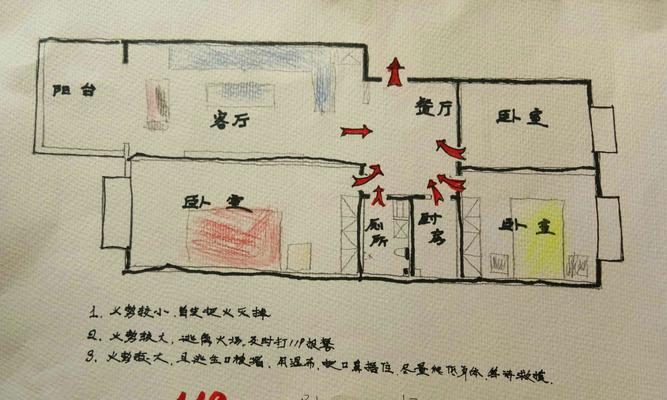 阳台
客厅
餐厅
卧室
卧室
厕所
厨房
卧室
1、火势较小,首先把火灭掉
2、火势较大,逃离火场,及时打119报警
3、火势较大,且逃生口被堵,用湿布,把口鼻捂住,尽量压低身体,等待救援.
119